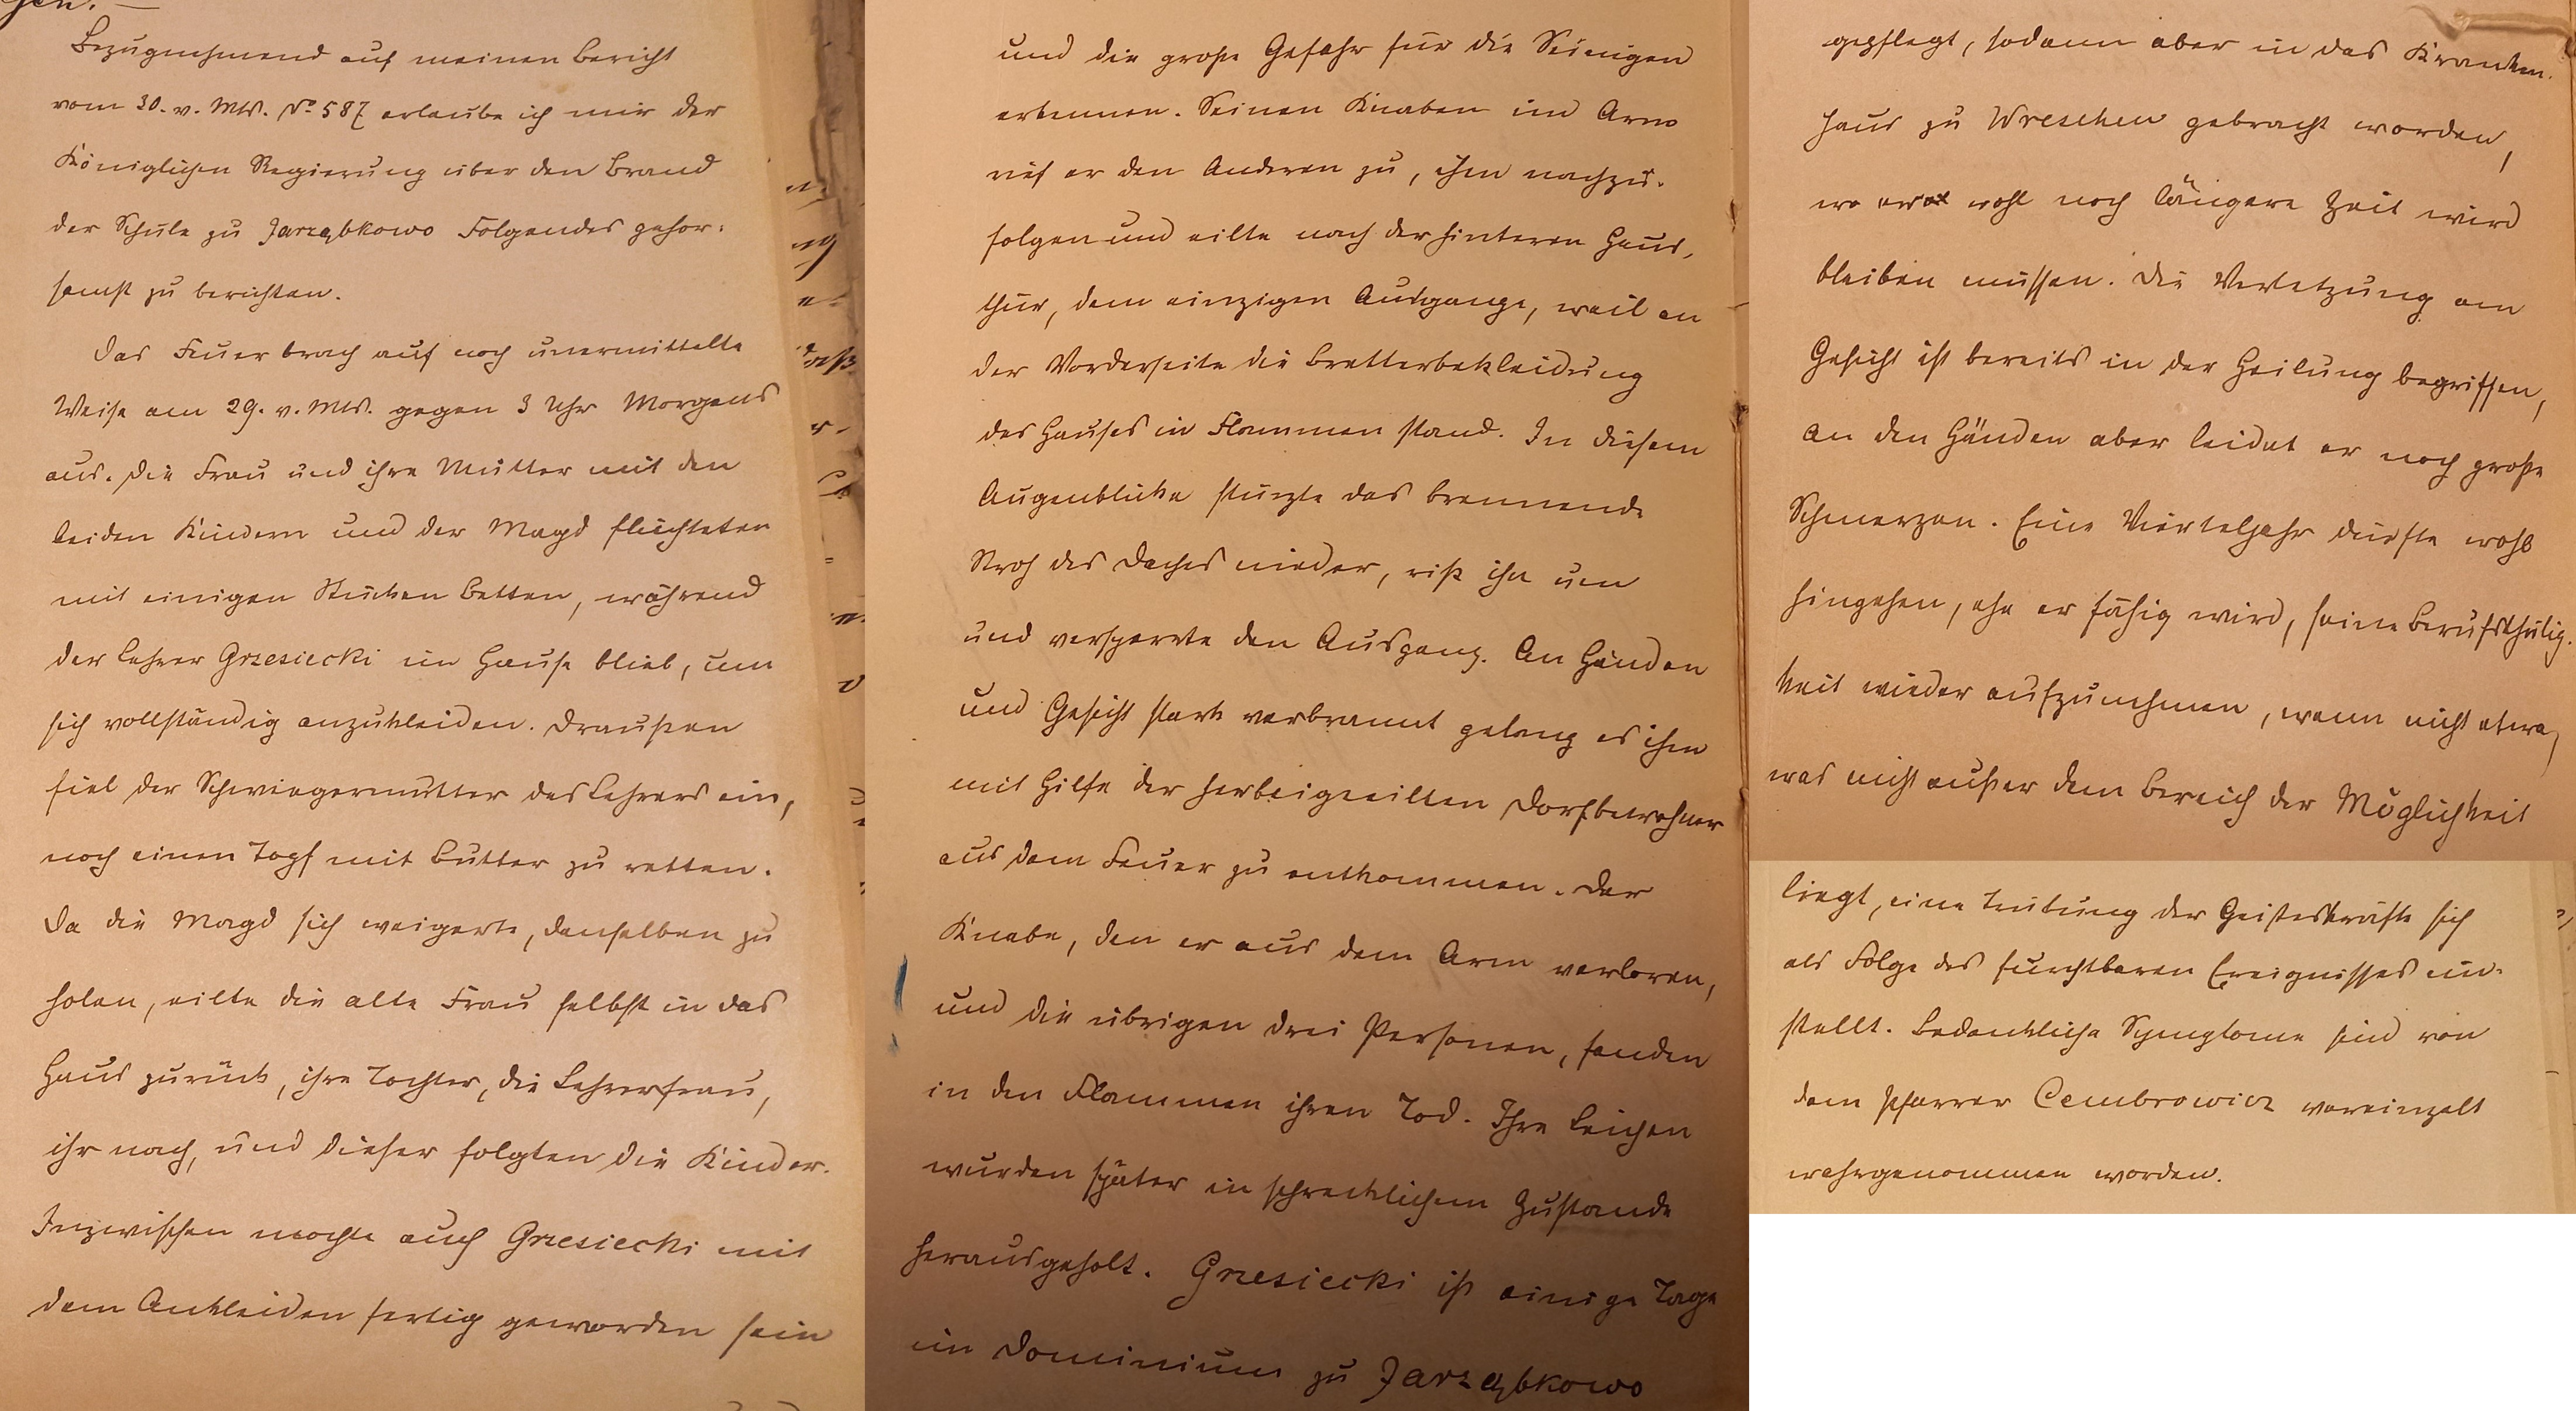 gen. —
Bezugnehmend auf meinen Bericht
vom 30. v. Mts. No 587 erlaube ich mir der
Königlichen Regierung über den Brand
der Schule zu Jarząbkowo Folgendes gehor-
samst zu berichten.
Das Feuer brach auf noch unermittelte
Weise am 29. v. Mts. gegen 3 Uhr Morgens
aus. Die Frau und ihre Mutter mit den
beiden Kindern und der Magd flüchteten
mit einigen Stücken Betten, während
der Lehrer Grzesiecki im Hause blieb, um
sich vollständig anzukleiden. Draußen
fiel der Schwiegermutter des Lehrers ein,
noch einen Topf mit Butter zu retten.
Da die Magd sich weigerte, denselben zu
holen, eilte die alte Frau selbst in das
Haus zurück, ihre Tochter, die Lehrerfrau,
ihr nach, und dieser folgten die Kinder.
Inzwischen mochte auch Grzesiecki mit
dem Ankleiden fertig geworden sein
und die große Gefahr für die Seinigen
erkennen. Seinen Knaben im Arm
rief er den Anderen zu, ihm nachzu-
folgen und eilte nach der hinteren Haus-
thür, dem einzigen Ausgange, weil an
der Vorderseite die Bretterbekleidung
des Hauses in Flammen stand. In diesem
Augenblicke stürzte das brennende
Stroh des Daches nieder, riß ihn um
und versperrte den Ausgang. An Händen
und Gesicht stark verbrannt gelang es ihm
mit Hilfe der herbeigeeilten Dorfbewohner
aus dem Feuer zu entkommen. Der
Knabe, den er aus dem Arm verloren,
und die übrigen drei Personen, fanden
in den Flammen ihren Tod. Ihre Leichen
wurden später in schrecklichem Zustande
herausgeholt. Grzesiecki ist einige Tage
im Dominium zu Jarząbkowo
gepflegt, sodann aber in das Kranken-
haus zu Wreschen gebracht worden,
wo er wohl noch längere Zeit wird
bleiben müssen. Die Verletzung am
Gesicht ist bereits in der Heilung begriffen,
an den Händen aber leidet er noch große
Schmerzen. Eine Vierteljahr dürfte wohl
hingehen, ehe er fähig wird, seine Berufsthätig-
keit wieder aufzunehmen, wenn nicht etwa,
was nicht außer dem Bereich der Möglichkeit
liegt, eine Trübung der Geisteskräfte sich
als Folge des furchtbaren Ereignisses ein-
stellt. Bedenkliche Symptome sind von
dem Pfarrer Cembrowicz vereinzelt
wahrgenommen worden.